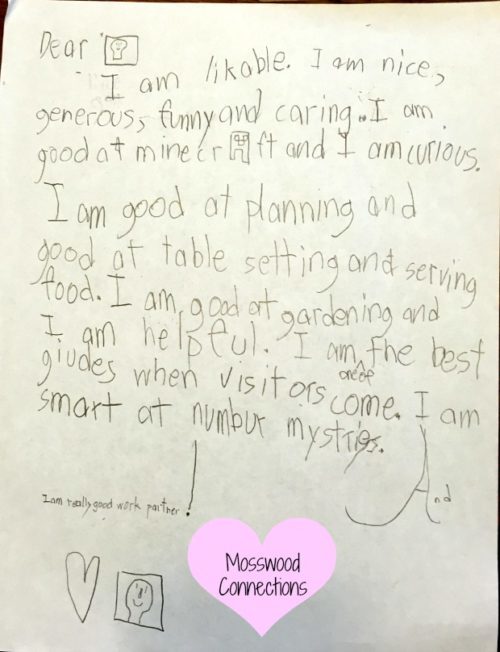 Dear
I am likable. I am nice,
generous, funny and caring. I am
good at minecr ft and I am curious.
I am good at planning and
good at table setting and serving
food. I am good at gardening and
I am helpful. I am one of the best
giudes when visitors come. I am
smart at numbur mystries.
And
I am really good work partner!
Mosswood
Connections